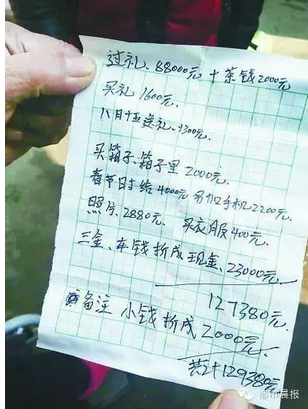 过礼 88000元 + 茶钱2000元
买礼 1600元.
八月十五送礼 1300元.
买箱子:箱子里 2000元
春节时给4000元 手机2200元
照片 2880元. 买衣服400元
三金、车钱折成现金. 23000元
127380元
备注 小钱折成2000元
共计129380元
都市晨报